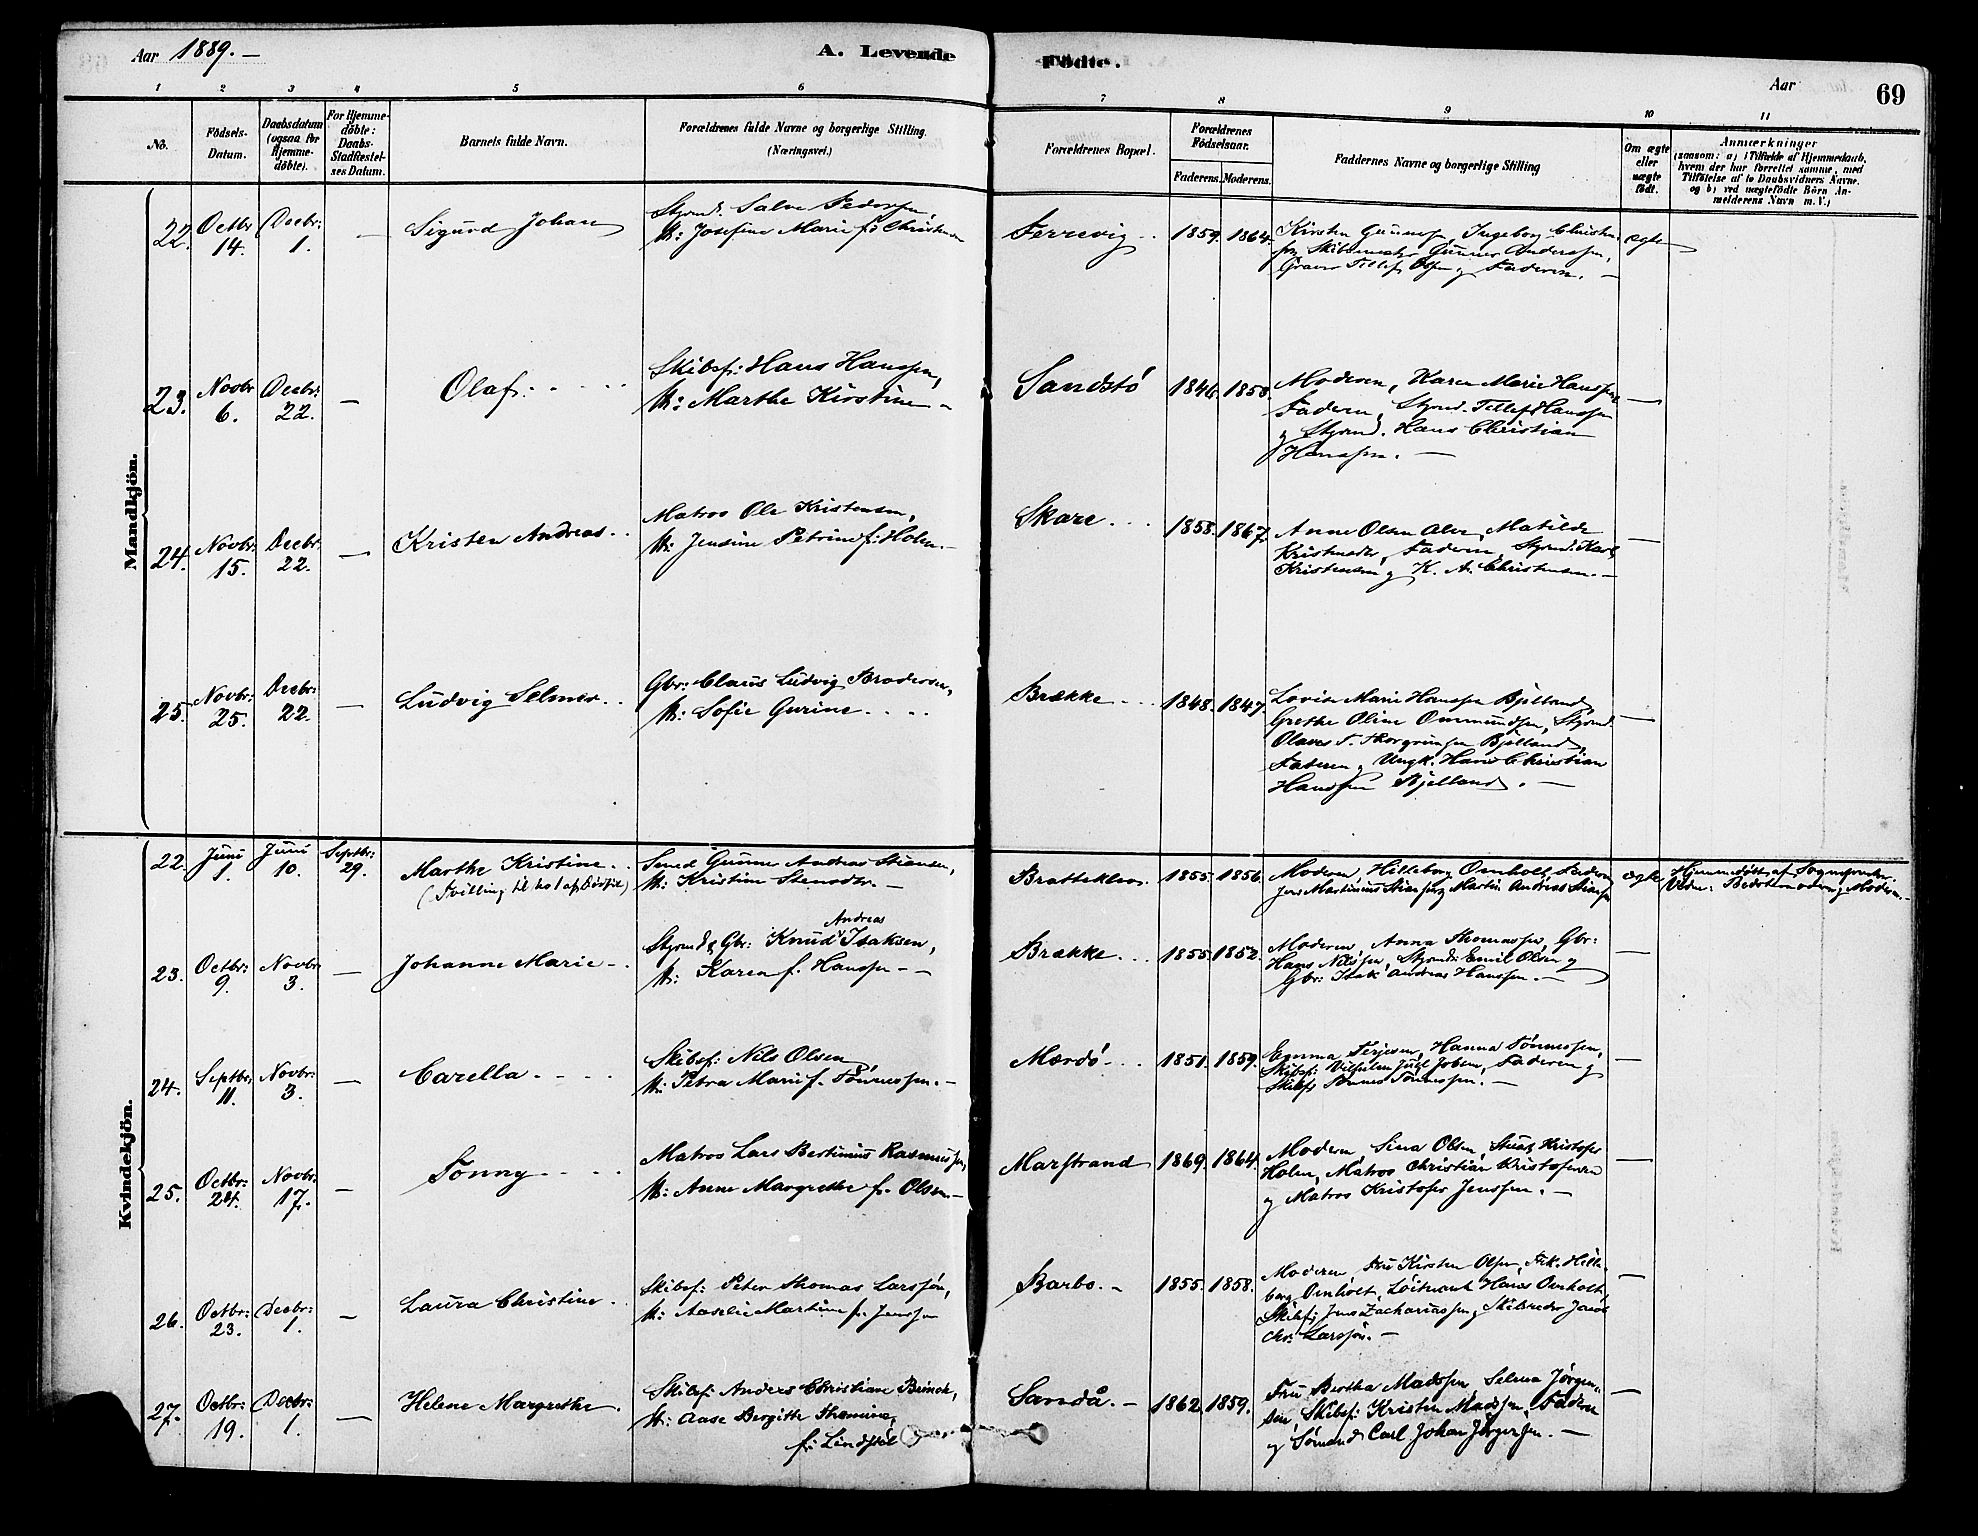 Aar 1889. —
A. Levende
Fødte.
Aar
69
1 2 3 4 5 6 7 8 9 10 11
No.
Födsels-Datum.
Daabsdatum (ogsaa for Hjemme-döbte).
For Hjemme-döbte: Daabs-Stadfæstel-ses Datum.
Barnets fulde Navn.
Forældrenes fulde Navne og borgerlige Stilling. (Næringsvei.)
Forældrenes Bopæl.
Forældrenes Födselsaar.
Faderens. Moderens.
Faddernes Navne og borgerlige Stilling
Om ægte eller uægte födt.
Anmærkninger
(saasom: a) i Tilfælde af Hjemmedaab,
hvem der har forrettet samme, med
Tilföielse af to Daabsvidners Navne,
og b) ved uægtefödte Börn An-
melderens Navn m. V.)
Mandkjön.
22. Octbr 14. Decbr: 1. — Sigurd Johan
Styrmd. Salve Pedersen,
H: Josefine Marie f: Christensen
Ferrevig . . 1859. 1864.
Kirsten Gunnersen, Ingeborg Christen-
sen, Skibstømmermd Gunner Anderssen,
Graver Tellef Olsen og Faderen. —
ægte
23. Novbr 6. Decbr: 22. — Olaf. . . . . .
Skibsf: Hans Hanssen,
H: Marthe Kirstine —
Sandstö 1846. 1850.
Moderen, Karen Marie Hanssen,
Faderen, Styrmd. Tellef Hanssen
og Styrmd. Hans Christian
Hanssen. —
—
24. Novbr: 15. Decbr: 22. — Kristen Andreas . .
Matros Ole Kristensen,
H: Jensine Petrine f: Holm. —
Skare . . . 1858. 1867.
Anne Olsen Alve, Matilde
Kristensdtr, Faderen, Styrmd: Karl
Kristensen og K. A. Christensen. —
—
25. Novbr: 25. Decbr: 22. — Ludvig Selmer . .
Gbr: Claus Ludvig Brodersen,
H: Sofie Gurine . . . .
Brække . . . 1848. 1847.
Lovise Marie Hanssen Bjelland,
Grethe Oline Ommundsen, Styrmd.
Olaves T. Thorgrimsen Bjelland,
Faderen og Ungk. Hans Christian
Hanssen Bjelland. —
—
Kvindekjön.
22. Juni 1. Juni 10. Septbr: 29. Marthe Kristine . .
(Tvilling til no 1 af Dødfødte)
Smed Gunner Andreas Stiansen,
H: Kristine Stensdtr. —
Bratteklev. 1855. 1856.
Moderen, Hilleborg Omholt, Faderen
Jens Martinius Stiansen og Martin Andreas Stiansen
ægte
Hjemmedøbt af Sognepresten.
Vidn: Bedstemoderen og Moderen. —
23. Octbr: 9. Novbr 3. — Johanne Marie — .
Andreas
Styrmd & Gbr: Knud Isaksen,
H: Karen f. Hanssen — —
Brække . . . 1855. 1852.
Moderen, Anna Thomassen, Gbr:
Hans Nilssen, Styrmd: Emil Olsen og
Gbr: Isak Andreas Hanssen. —
—
24. Septbr: 11. Novbr: 3. — Carella . . . .
Skibsf: Nils Olsen
H: Petra Marie f. Tönnessen. —
Mærdö . . . 1851. 1859.
Emma Terjesen, Hanna Tönnessen,
Skibsf: Vilhelm Juhl Jobsen, Faderen og
Skibsf Tönnessen. —
—
25. Octbr: 24. Novbr: 17. — Tonny . . . .
Matros Lars Bertinius Rasmussen,
H: Anne Margrethe f. Olsen —
Marstrand 1869. 1864.
Moderen, Sina Olsen, Kristofer
Holm, Matros Christian Kristofersen
og Matros Kristofer Jenssen. —
—
26. Octbr: 23. Decbr: 1. — Laura Christine .
Skibsf: Peter Thomas Larssön,
H: Aaselie Martine f. Jenssen
Barbo. — 1855. 1858.
Moderen, Fru Kirsten Olsen, Frk. Hille-
borg Omholt, Löitnant Hans Omholt,
Skibsf: Jens Zachariassen og Skibsreder Jacob
Chr: Larssön. —
—
27. Octbr: 19. Decbr: 1. — Helene Margrethe .
Skibsf: Anders Christian Brinck,
H: Aase Bergitte Thomine,
f: Lindstöl
Sandå. — 1862. 1859.
Fru Bertha Madssen, Selma Jørgen-
sen, Skibsf: Kristen Madssen, Faderen
og Sömand Carl Johan Jørgensen. —
—